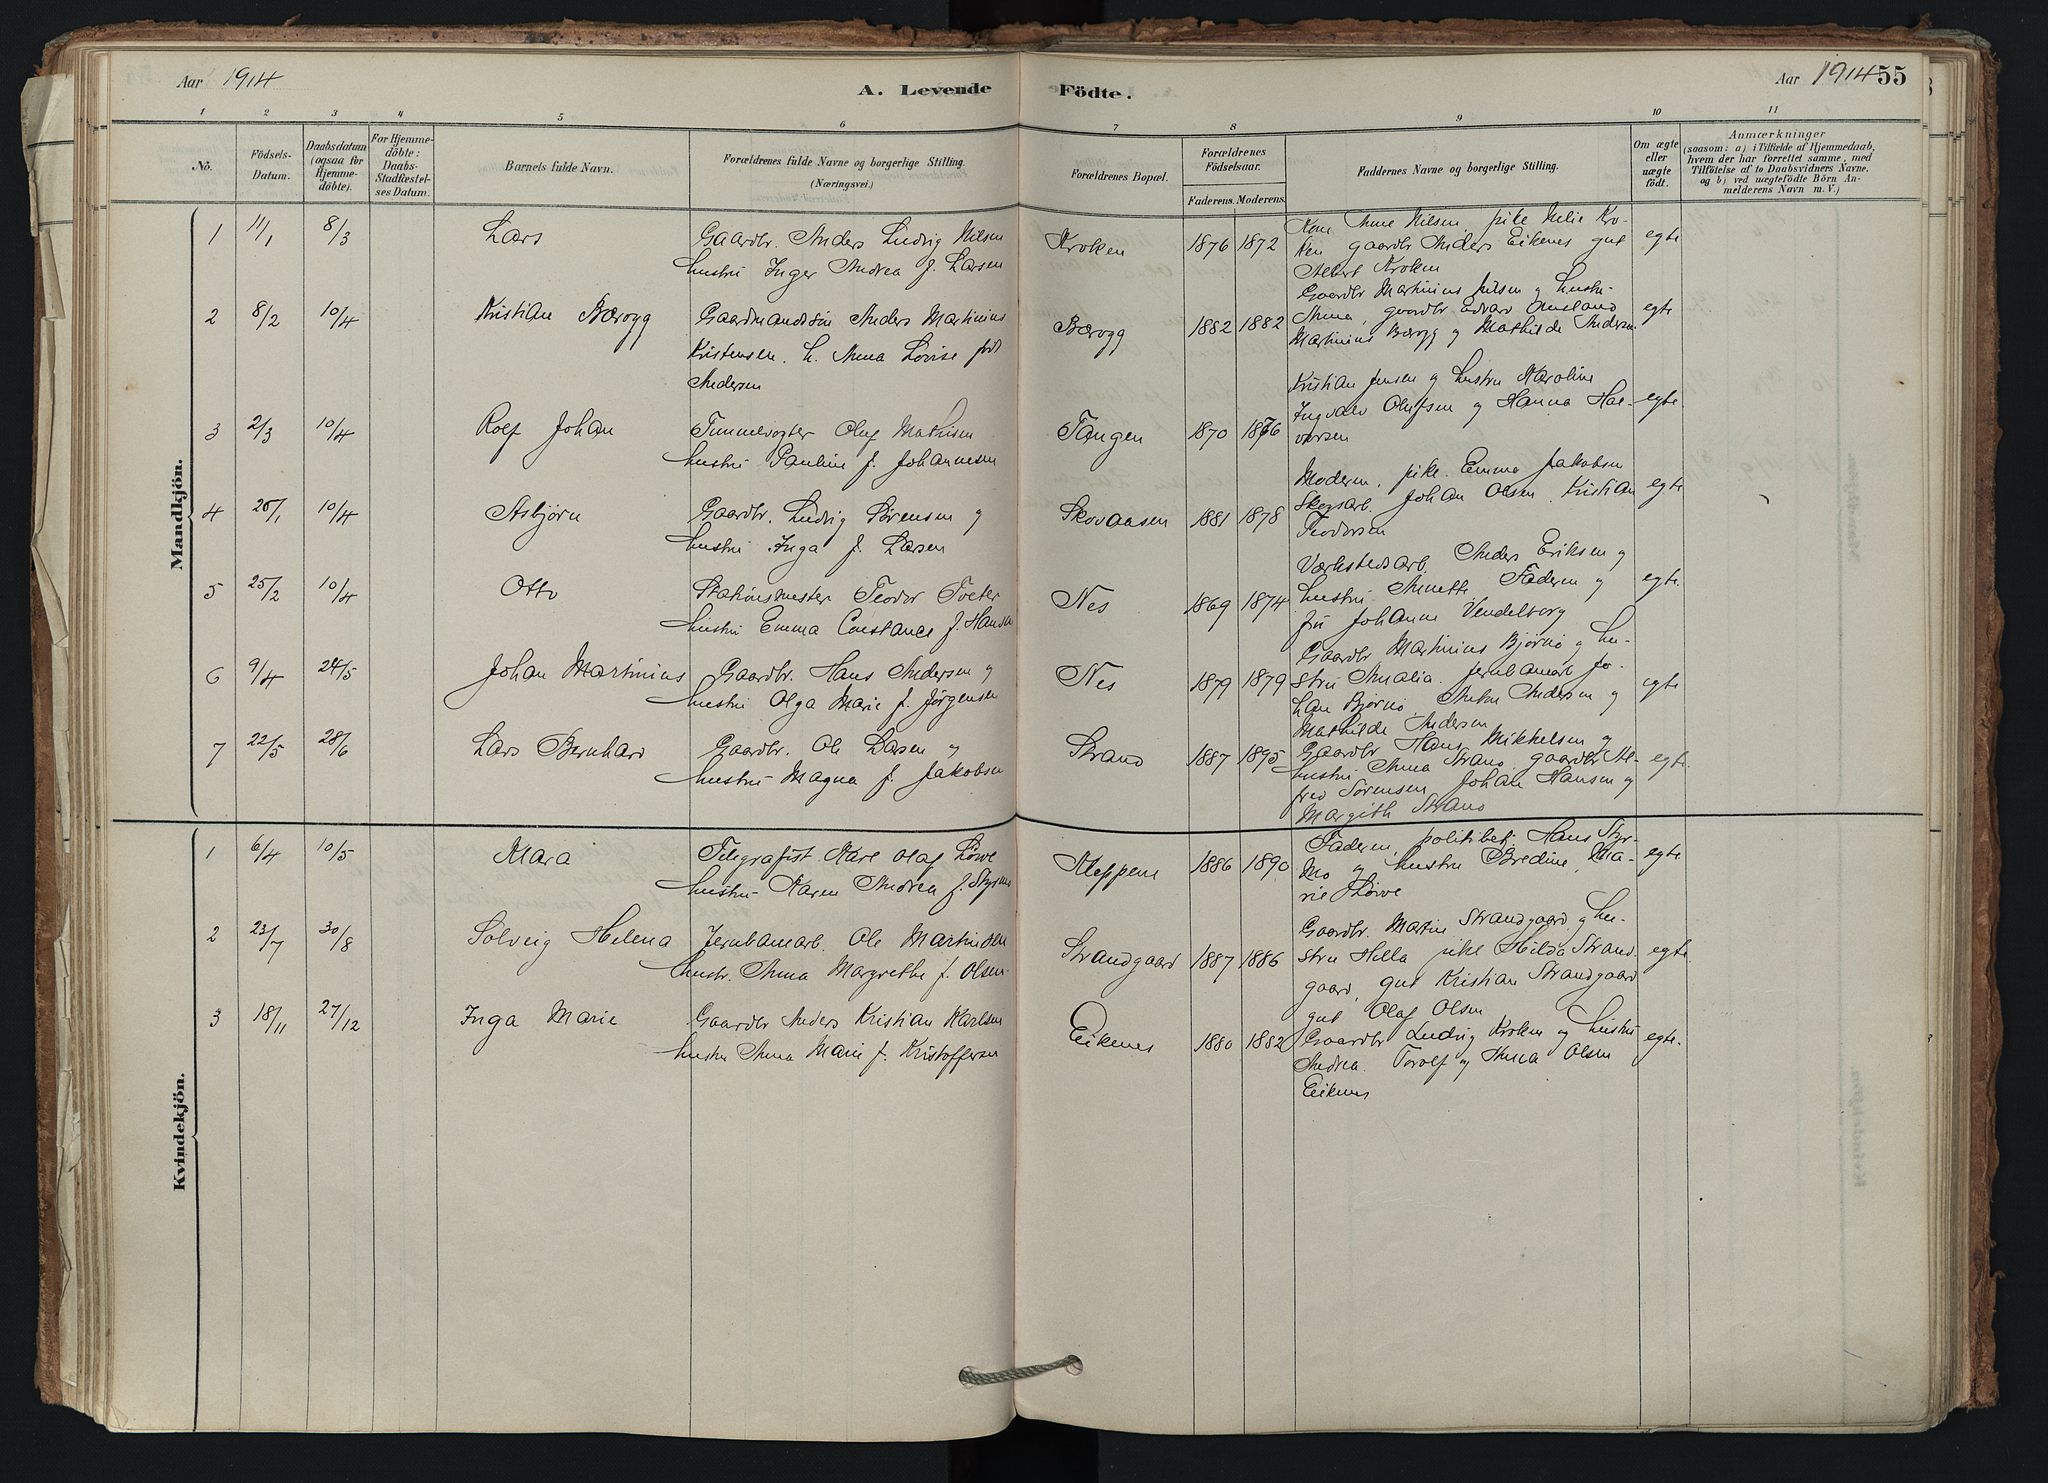 Aar 1914
A. Levende Födte.
Aar 1914 55
1 2 3 4 5 6 7 8 9 10 11
No.
Födsels-Datum.
Daabsdatum (ogsaa for Hjemmedöbte).
For Hjemmedöbte: Daabs-Stadfæstelses Datum.
Barnets fulde Navn.
Forældrenes fulde Navne og borgerlige Stilling.
(Næringsvei.)
Forældrenes Bopæl.
Forældrenes Födselsaar.
Faderens. Moderens.
Faddernes Navne og borgerlige Stilling.
Om ægte eller uægte födt.
Anmærkninger
(saasom: a) i Tilfælde af Hjemmedaab,
hvem der har forrettet samme, med
Tilföielse af to Daabsvidners Navne.
og b) ved uægtefödte Börn Anmelderens Navn m. V.)
Mandkjön.
1 11/1 8/3 Lars Gaardbr. Anders Ludvig Nilsen
hustru Inger Andrea f. Larsen
Kroken 1876 1872
Kone Anne Nilsen, pike Kro-
ken gaardbr Anders Eikenes gut
Albert Kroken
egte
2 8/2 10/4 Kristian Bærøgg Gaardmandssøn Anders Martinius
Kristensen. h. Anna Lovise født
Andersen
Bærøgg 1882 1882
Gaardbr Martinius Nilsen og hustru
Anna, gaardbr Edvard
Martinius Bærøgg og Mathilde Andersen
egte
3 2/3 10/4 Rolf Johan Tunnelvogter Oluf Mathisen
hustru Pauline f. Johannesen
Tangen 1870 1876
Kristian Jensen og hustru Karoline
Ingvald Olufsen og Hanna Hal-
vorsen
egte
4 25/1 10/4 Asbjørn Gaardbr. Ludvig Sørensen og
hustru Inga f. Larsen
Skovaasen 1881 1878
Moderen, pike Emma Jakobsen
Skogsarb. Johan Olsen. Kristian
Teodorsen
egte
5 25/2 10/4 Otto Stationsmester Teodor Tveter
hustru Emma Constance f. Hansen
Nes 1869 1874
Værkstedsarb. Anders Eriksen og
hustru Anette, Faderen og
fru Johanne Vendelborg
egte
6 9/4 24/5 Johan Martinius Gaardbr. Hans Andersen og
hustru Olga Marie f. Jørgensen
Nes 1879 1879
Gaardbr Martinius Bjørnø og hu-
stru Amalia. jernbanearb Jo-
han Bjørnø, Anton Andersen og
Mathilde Andersen
egte
7 22/5 28/6 Lars Bernhard Gaardbr. Ole Larsen og
hustru Magna f. Jakobsen
Strand 1887 1895
Gaardbr Hans Mikkelsen og
hustru Anna Strand, gaardbr Al-
fred Sørensen Johan Hansen og
Margith Strand
egte.
Kvindekjön.
1 6/4 10/5 Mara Telegrafist Karl Olaf Løve
hustru Karen Andrea f. Styrmo
Kleppen 1886 1890
Faderen, politibetj. Hans Styr-
mo og hustru Bredine, Ma-
rie Løve
egte
2 23/7 30/8 Solveig Helena Jernbanearb. Ole Martinsen
hustr. Anna Margrethe f. Olsen.
Strandgaard 1887 1886
Gaardbr. Martin Strandgaard og hu-
stru Hella pike Hilda Strand-
gaard, gut Kristian Strandgaard
gut Olaf Olsen
egte.
3 18/11 27/12 Inga Marie Gaardbr Anders Kristian Karlsen
hustru Anna Marie f. Kristoffersen
Eikenes 1880 1882
Gaardbr Ludvig Kroken og hustru
Andrea. Torolf og Anna Olsen
Eikenes
egte.